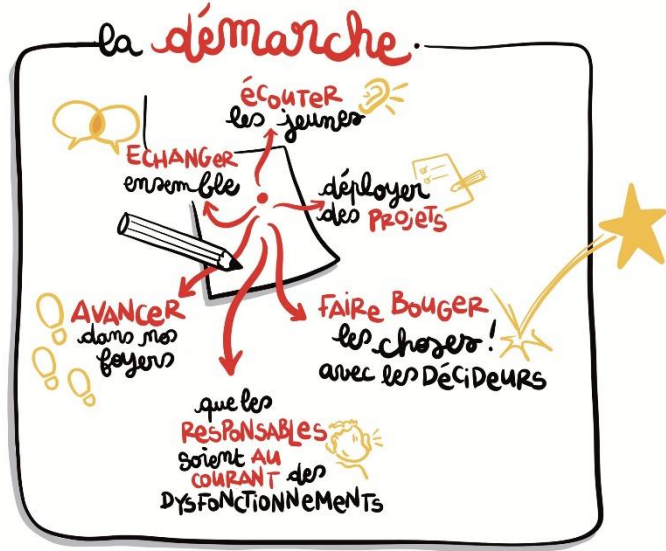 la démarche.
écouter
les jeunes
ECHANGER
ensemble
déployer
des PROJETS
AVANCER
dans nos
foyers
FAIRE BOUGER
les choses !
avec les DÉCIDEURS
que les
RESPONSABLES
soient AU
COURANT des
DYSFONCTIONNEMENTS